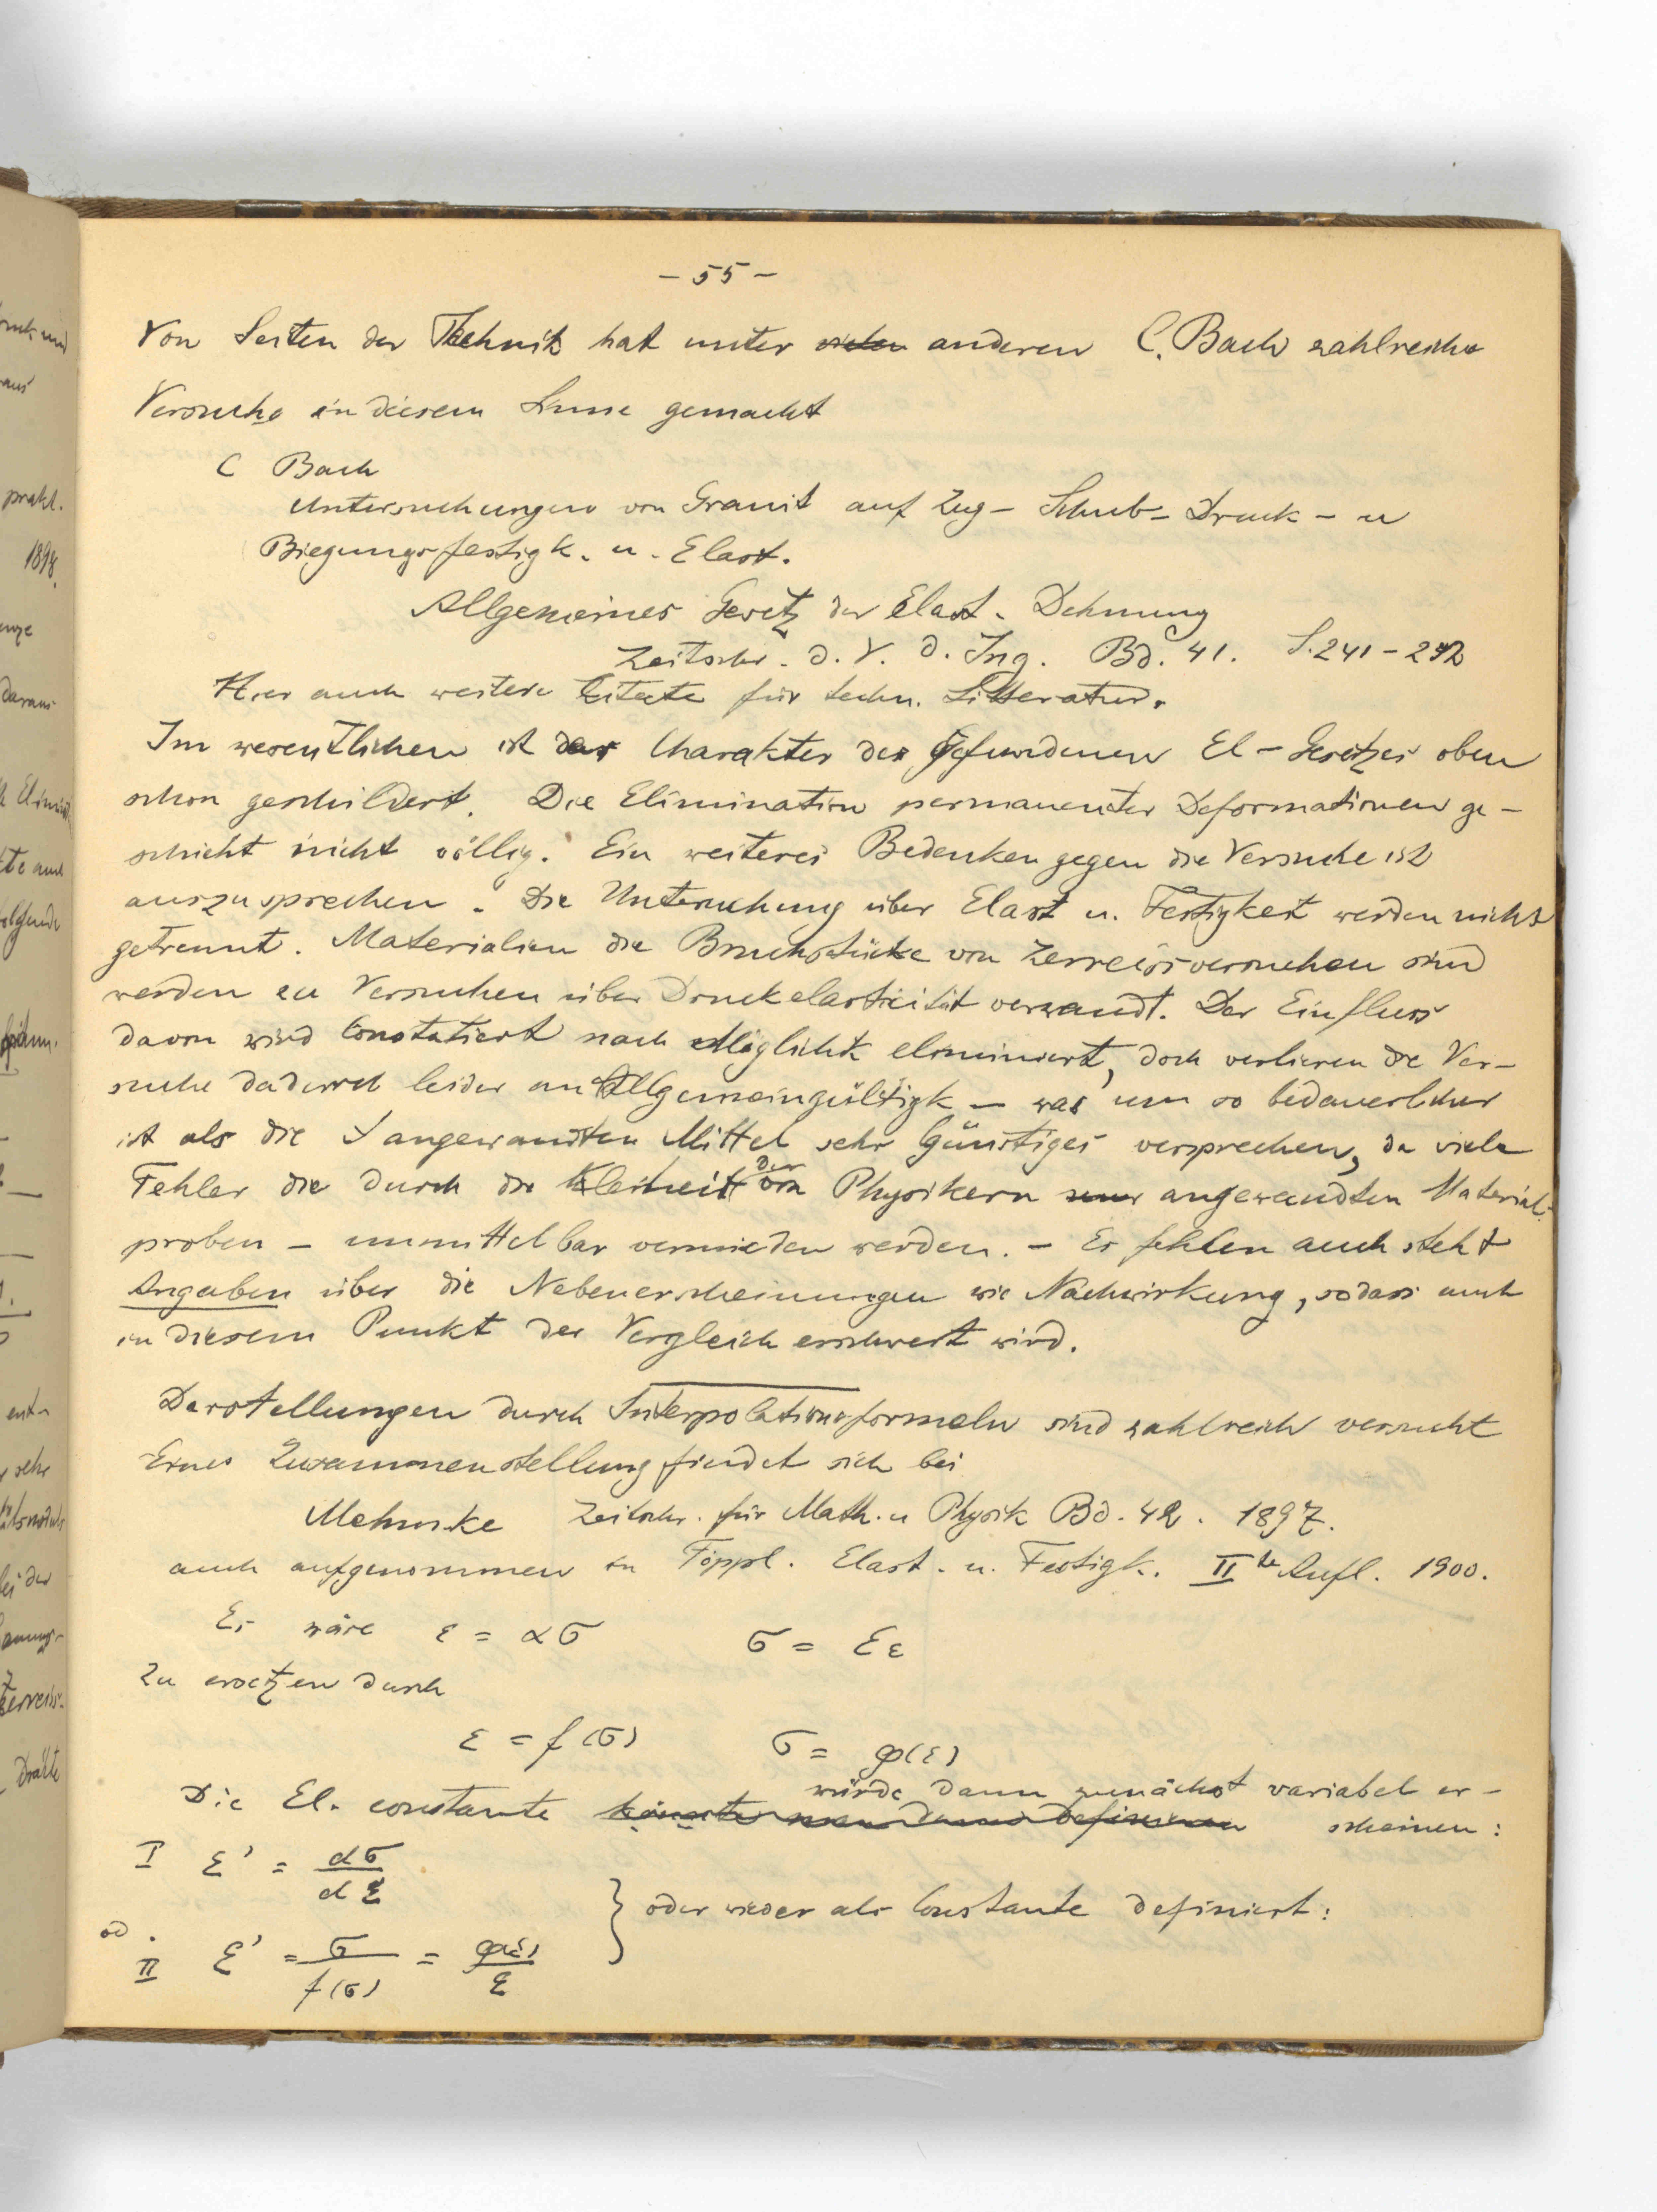 - 55 -
Von Seiten der Technik hat unter anderen C. Bach zahlreiche
Versuche in diesem Sinne gemacht
C Bach
Untersuchungen von Granit auf Zug- Schub- Druck- u
Biegungsfestigk. u. Elast.
Allgemeines Gesetz der Elast. Dehnung
Zeitschr. d. V. d. Ing. Bd. 41. S. 241 -
Hier auch weitere Citate für techn. Litteratur.
Im wesentlichen ist der Charakter des gefundenen El-Gesetzes oben
schon geschildert. Die Elimination permanenter Deformationen ge-
schieht nicht völlig. Ein weiteres Bedenken gegen die Versuche ist
auszusprechen. Die Untersuchung über Elast u. Festigkeit werden nicht
getrennt. Materialien die Bruchstücke von Zerreissversuchen sind
werden zu Versuchen über Druckelasticität verwandt. Der Einfluss
davon wird Constatiert nach Möglichk eliminiert, doch verlieren die Ver-
suche dadurch leider an Allgemeingültigk - was um so bedauerlicher
ist als die angewandten Mittel sehr Günstiges versprechen, da viele
Fehler die durch die Kleinheit der von Physikern angewandten Material-
proben - unmittelbar vermieden werden. - Es fehlen auch
Angaben über die Nebenerscheinungen wie Nachwirkung, sodass auch
in diesem Punkt der Vergleich erschwert wird.
Darstellungen durch Interpolationsformeln sind zahlreich versucht
Eine Zusammenstellung findet sich bei
Mehmke Zeitschr. für Math. u Physik Bd. 42. 1897.
auch aufgenommen in Föppl. Elast. u. Festigk. IIte Aufl. 1900.
Es wäre ε = ασ σ = Eε
Zu ersetzen durch
ε = f(σ) σ = φ(ε)
Die El. constante würde dann zunächst variabel er-
scheinen:
I E' = dσ/dε
od.
II E' = σ/f(σ) = φ(ε)/ε } oder wieder als Constante definiert:
prakt.
1898
daraus